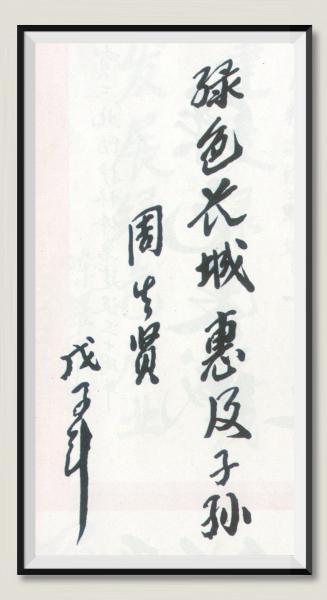 绿色长城惠及子孙
周生贤
戊子年